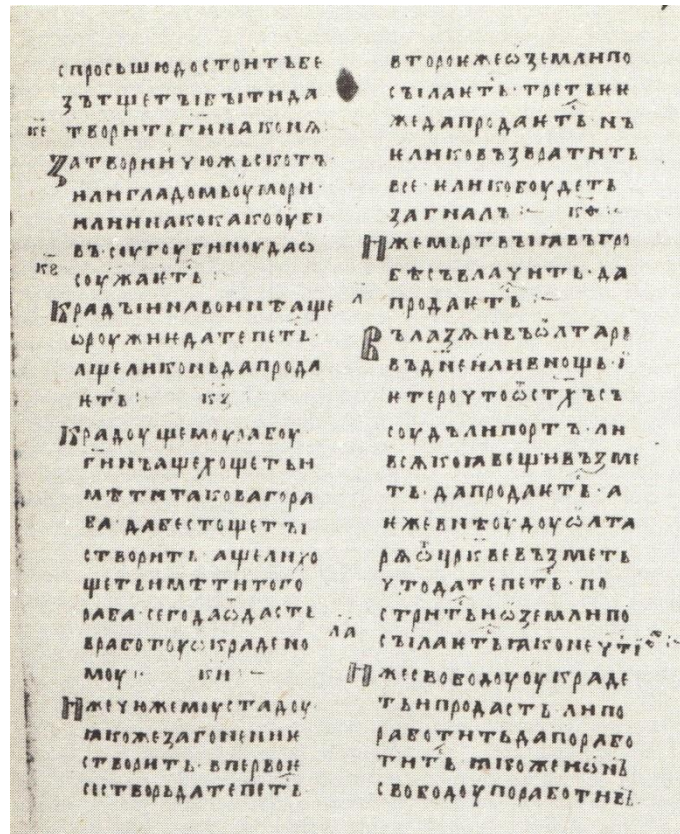 спросьшюдостоитъбе
зътщетъібꙑтида
к҃е творитьг҃инаконꙗ·
Затвориичюжьскотъ
илигладомьоумори·
илиинакокакооубі
въ·соугоубиноудаѿ
к҃ѕ соужаѥтъ:
Крадꙑинавоинѣаще
ѡроужиидатепеть·
ащеликоньдапрода
ѥть: к҃з
Крадоущемоурабоу·
г҃инъащехощетьи
мѣтитаковагора
ба·дабестощетъі
створить·ащелихо
щетьимѣтитого
раба·сегодаѿдасть
вработоуѡкрадено
моу: к҃и:~
Ижечюжемоустадоу·
ꙗкожезагонениѥ
створить·впервоѥ
сістворьдатепеть
второѥжеѿземлипо
сꙑлаѥтъ·третьеѥ
жедапродаѥтъ·нъ
иликовъзвратить
все·иликобоудеть
загналъ:~ к҃ѳ:~
Ижемьртвꙑꙗвъгро
бѣсъвлачить·да
л҃ продаѥть:~
Вълазѧивъѡлтарь
въдн҃еилівнощь·ї
ѥтероучтоѿст҃хъсъ
соудълипортъ·ли
всѧкоꙗвещивъзме
ть·дапродаѥтъ·а
ижевнѣоудоуѡлта
рѧѿцр҃квевъзметь
чтодатепеть·по
стритьиѿземлипо
л҃а сꙑлаѥтьꙗконечті
Ижесвободоуоукраде
тьипродасть·липо
работитьдапорабо
тить·ꙗкожеиѡнъ
свободоупоработивъ